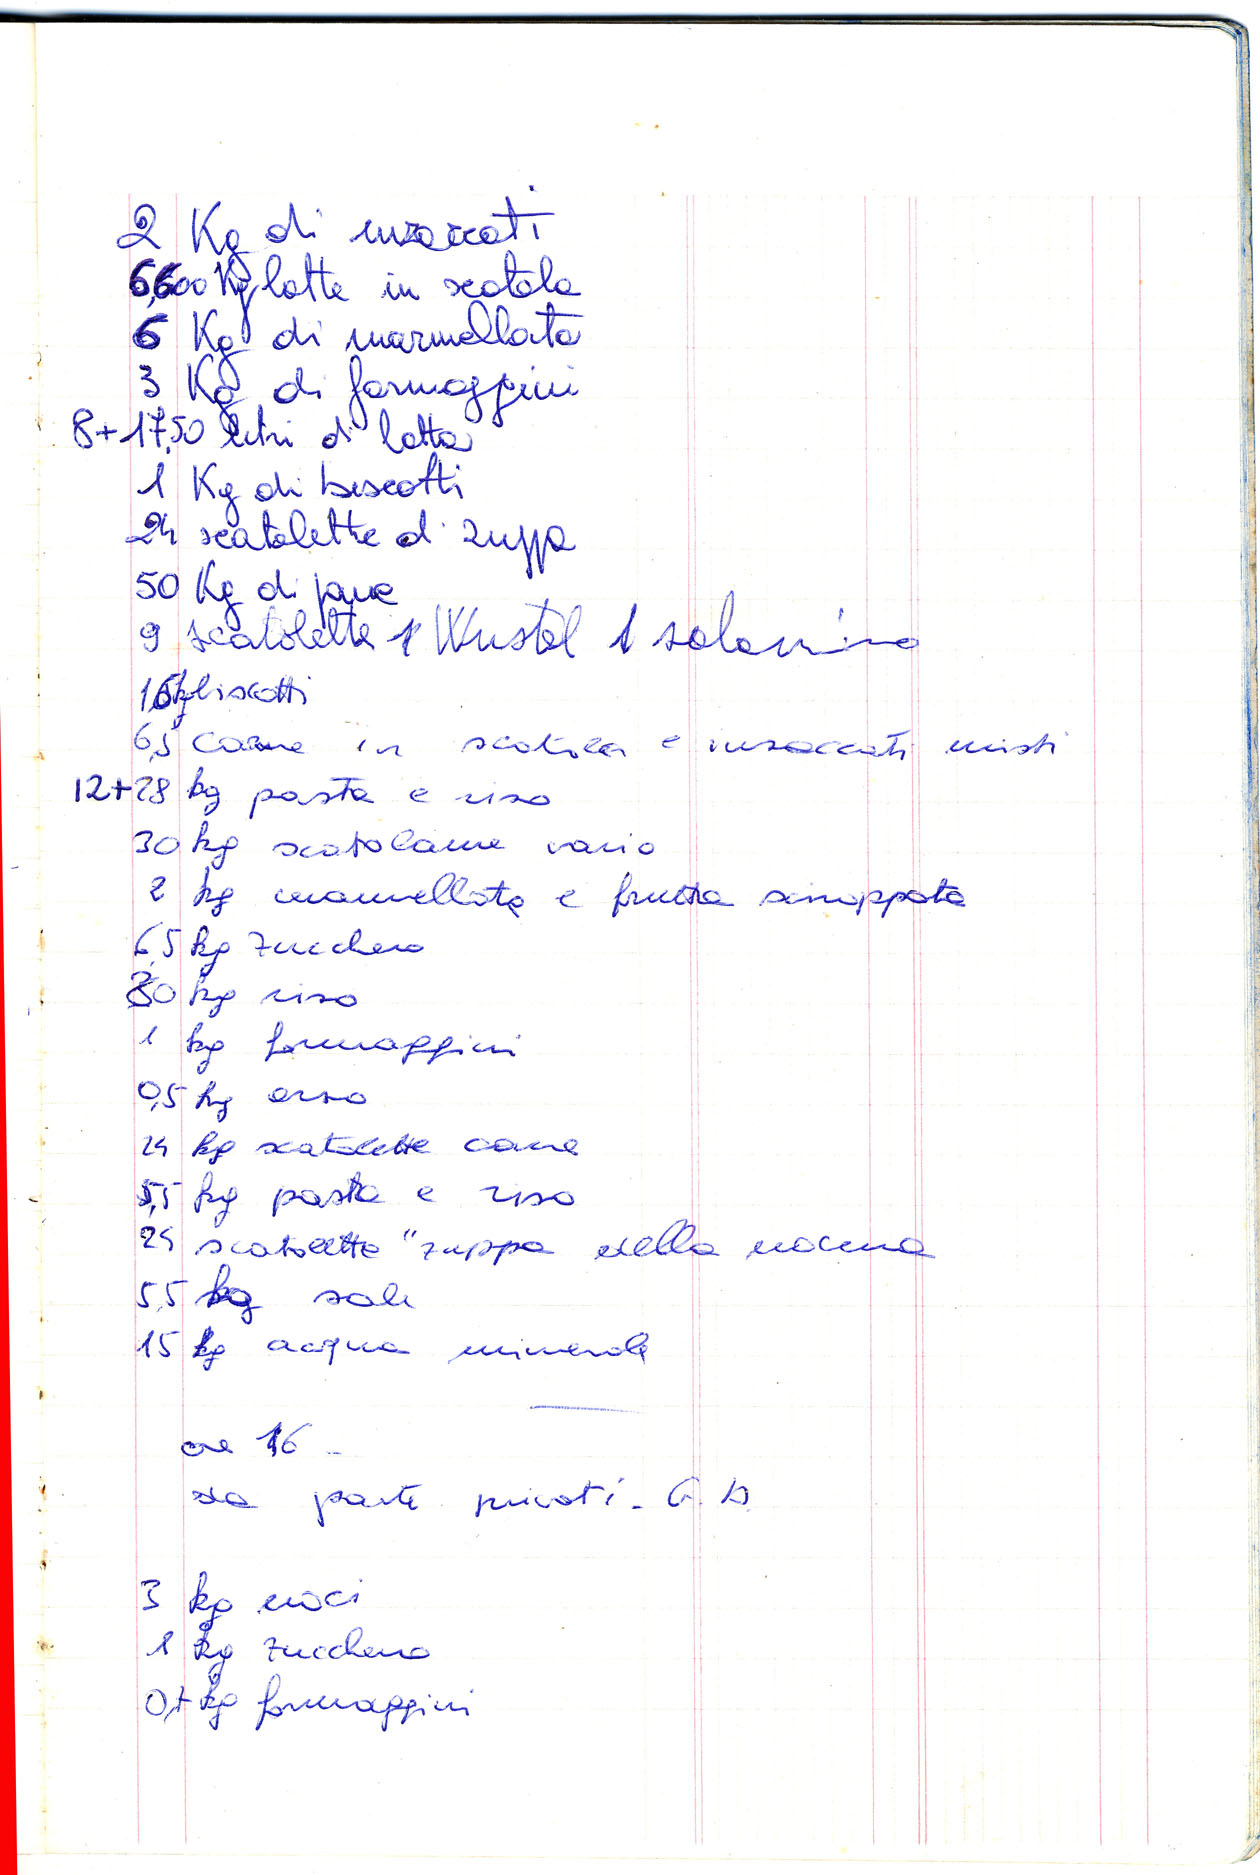 2 Kg di insaccati
6,600 Kg latte in scatola
6 Kg di marmellata
3 Kg di formaggini
8+17,50 litri di latte
1 Kg di biscotti
24 scatolette di zuppa
50 Kg di pane
9 scatolette 1 Wustel 1 salamino
1,5 kg biscotti
6,5 carne in scatola e insaccati misti
12+28 kg pasta e riso
30 kg scatolame vario
2 kg marmellata e frutta sciroppata
6,5 kg zucchero
kg riso
1 kg formaggini
0,5 kg orzo
24 kg scatolette carne
5,5 kg pasta e riso
24 scatolette "zuppa della nonna
5,5 kg sale
15 kg acqua minerale
ore 16 -
da parte privati - G. D.
3 kg noci
1 kg zucchero
kg formaggini